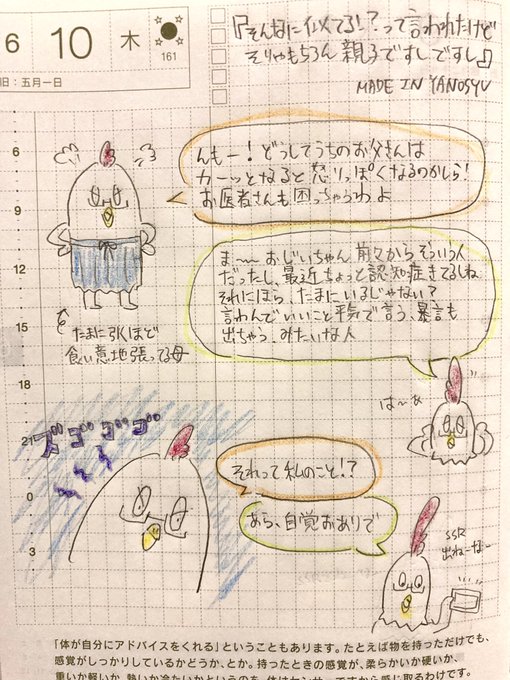 6 10 木
161
旧:五月一日
『そんなに似てる!?って言われたけど
そりゃもちろん親子ですしですし』
MADE IN YANOSYU
6
んもー!どうしてうちのお父さんは
カーッとなると怒りっぽくなるのかしら!
お医者さんも困っちゃうわよ
9
12
ま〜〜おじいちゃん前々からそういう人
だったし、最近ちょっと認知症きてるしね
それにほら、たまにいるじゃない?
言わんでいいこと平気で言う、暴言も
出ちゃう、みたいな人
15
たまに引くほど
食い意地張ってる母
18
は〜あ
21
ズゴゴゴゴ
それって私のこと!?
0
あら、自覚おありで
3
SSR
出ねーな
「体が自分にアドバイスをくれる」ということもあります。たとえば物を持っただけでも、
感覚がしっかりしているかどうか、とか。持ったときの感覚が、柔らかいか硬いか、
重いか軽いか、熱いか冷たいかというのを、体はセンサーですから感じ取るわけです。